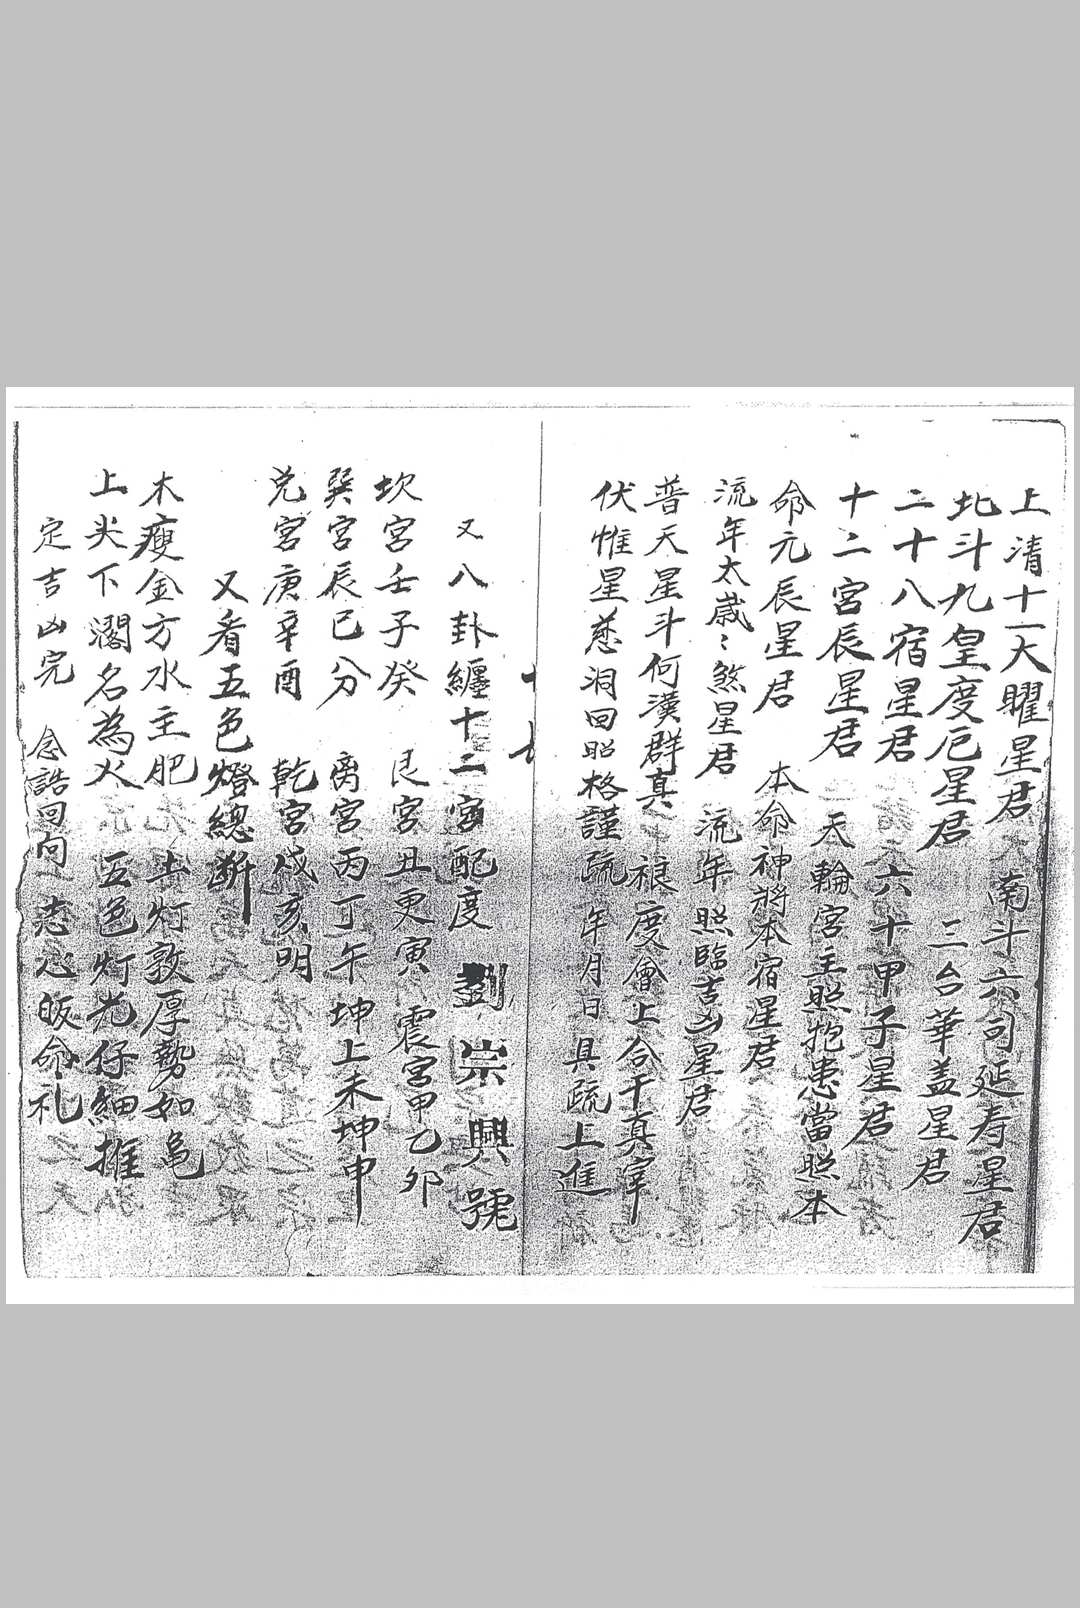 上清十一大曜星君　南斗六司延寿星君
北斗九皇度厄星君　三台華盖星君
二十八宿星君　六十甲子星君
十二宮辰星君　天輪宮主照抱患當照本
命元辰星君　本命神將本宿星君
流年太歲〻煞星君　流年照臨吉凶星君
普天星斗何漢群真　祿度會上合干真宰
伏惟星慈洞回昭格謹疏　年月日具疏上進
又八卦纏十二宮配度　劉宗興號
坎宮壬子癸　艮宮丑更寅　震宮甲乙卯
巽宮辰巳分　离宮丙丁午　坤上未坤申
兌宮庚辛酉　乾宮戍亥明
又看五色燈總断
木瘦金方水主肥　土灯敦厚勢如亀
上尖下濶名為火　五色灯光仔細推
定吉凶完　念誥回向　志心皈命礼